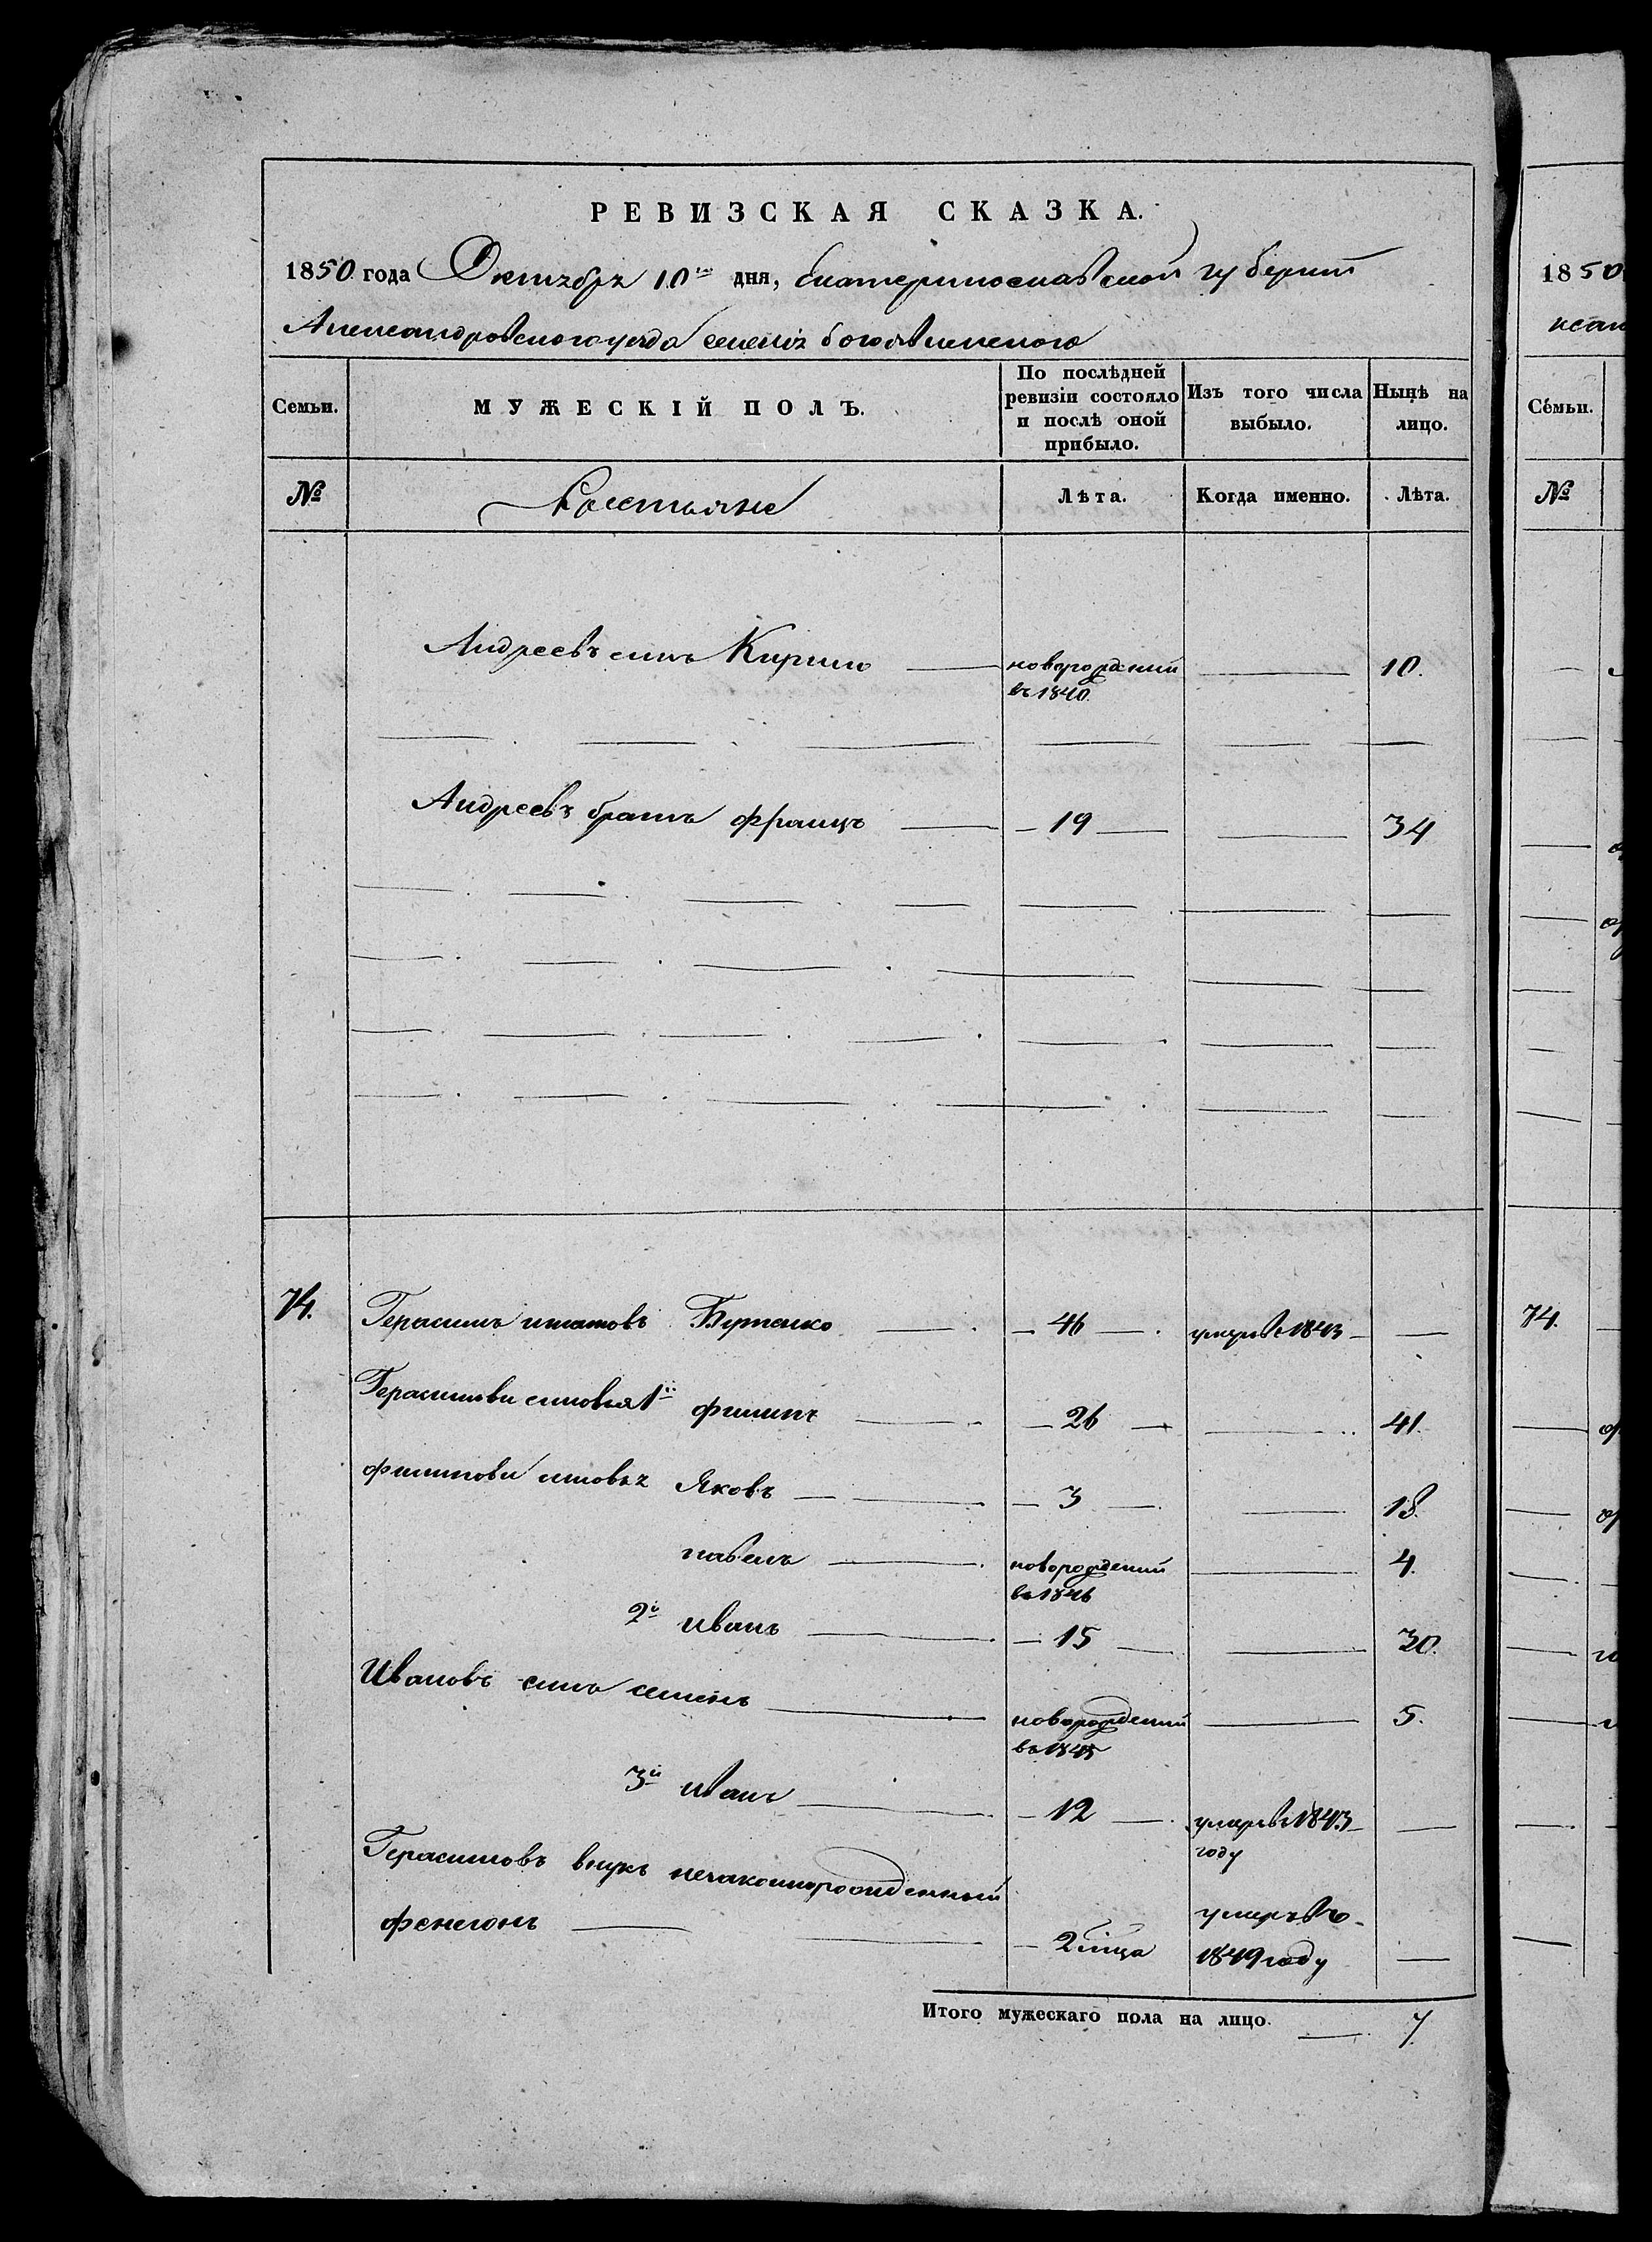 РЕВИЗСКАЯ СКАЗКА.
1850 года Октября 10го дня, Екатеринославской губернии
Александровского уезда селения богоявленского
Семьи.
МУЖЕСКІЙ ПОЛЪ.
По послѣдней ревизіи состояло и послѣ оной прибыло.
Изъ того числа выбыло.
Нынѣ на лицо.
№
Лѣта.
Когда именно.
Лѣта.
Андреевъ синъ Кирило — новорожденний — 10.
въ 1840.
Андреевъ братъ францъ — 19 — 34
74. Герасимъ игнатовъ Бутенко — 46 — умеръ в 1843 —
Герасимови синовья 1й филипъ — 26 — 41.
филипови синовья Яковъ — 3 — 18.
павелъ — новорожденний — 4.
въ 1846
2й иванъ — 15 — 30.
Ивановъ синъ семенъ — новорожденний — 5.
въ 1845
3й иванъ — 12 — умеръ в 1843 —
году
Герасимовъ внукъ незаконнорожденный
— 2 м̃ца умеръ въ
1849 году —
Итого мужескаго пола на лицо. — 7.
1850
Семьи.
№
74.